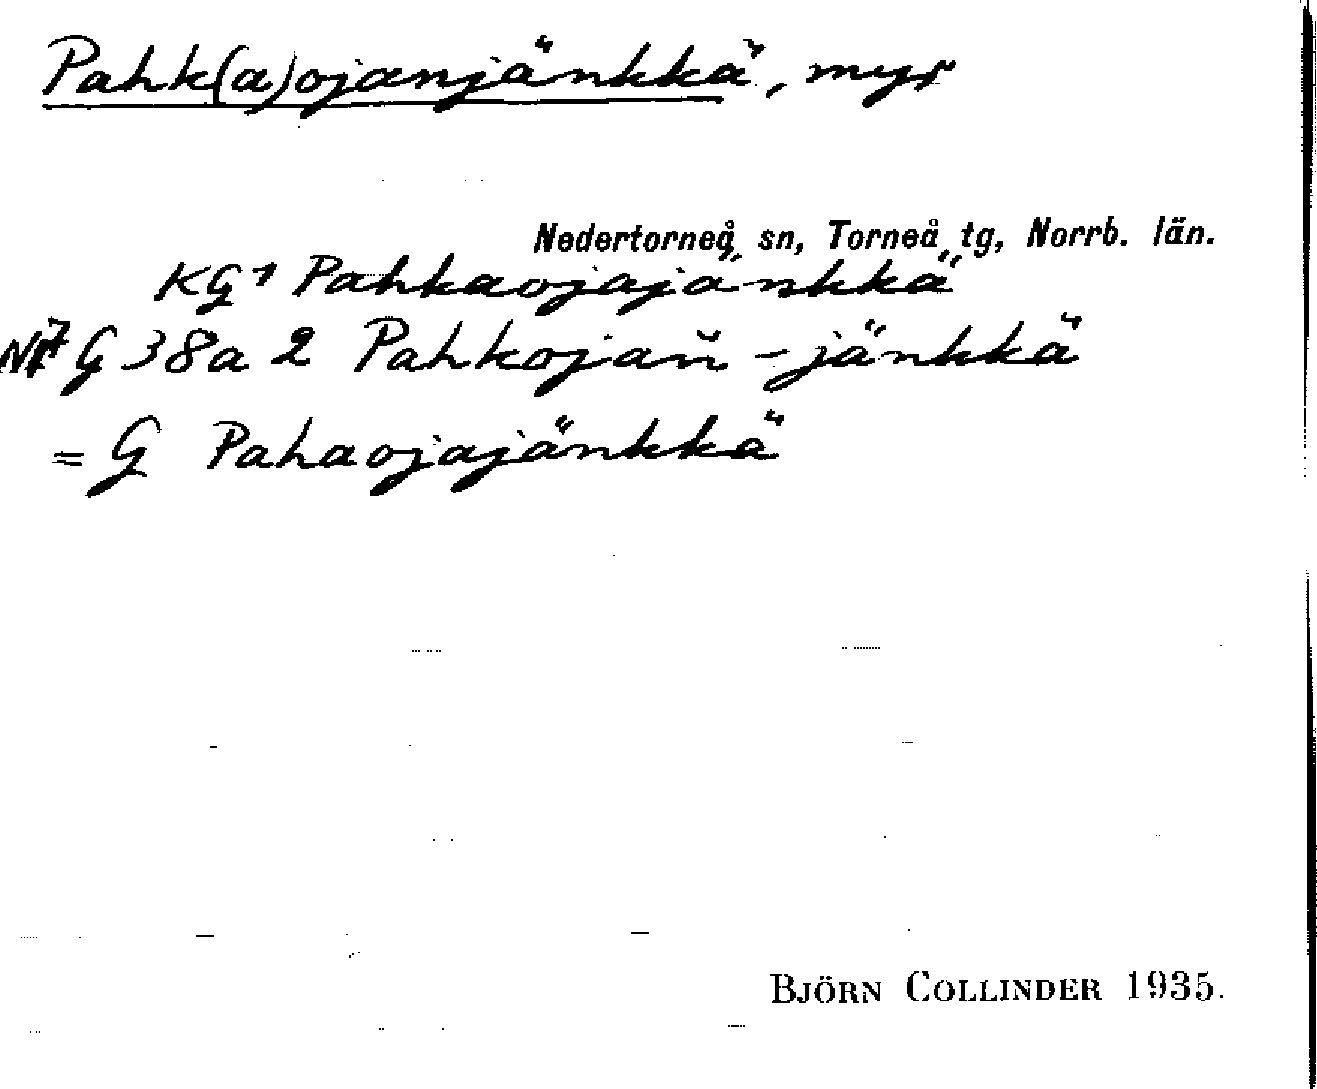 Pahk(a)ojanjänkkä, myr
Nedertorneå sn, Torneå tg, Norrb. län.
KG1 Pahkaojajänkkä
G 38a 2 Pahkojan̆ - jänkkä
= G Pahaojajänkkä
BJÖRN COLLINDER 1935.